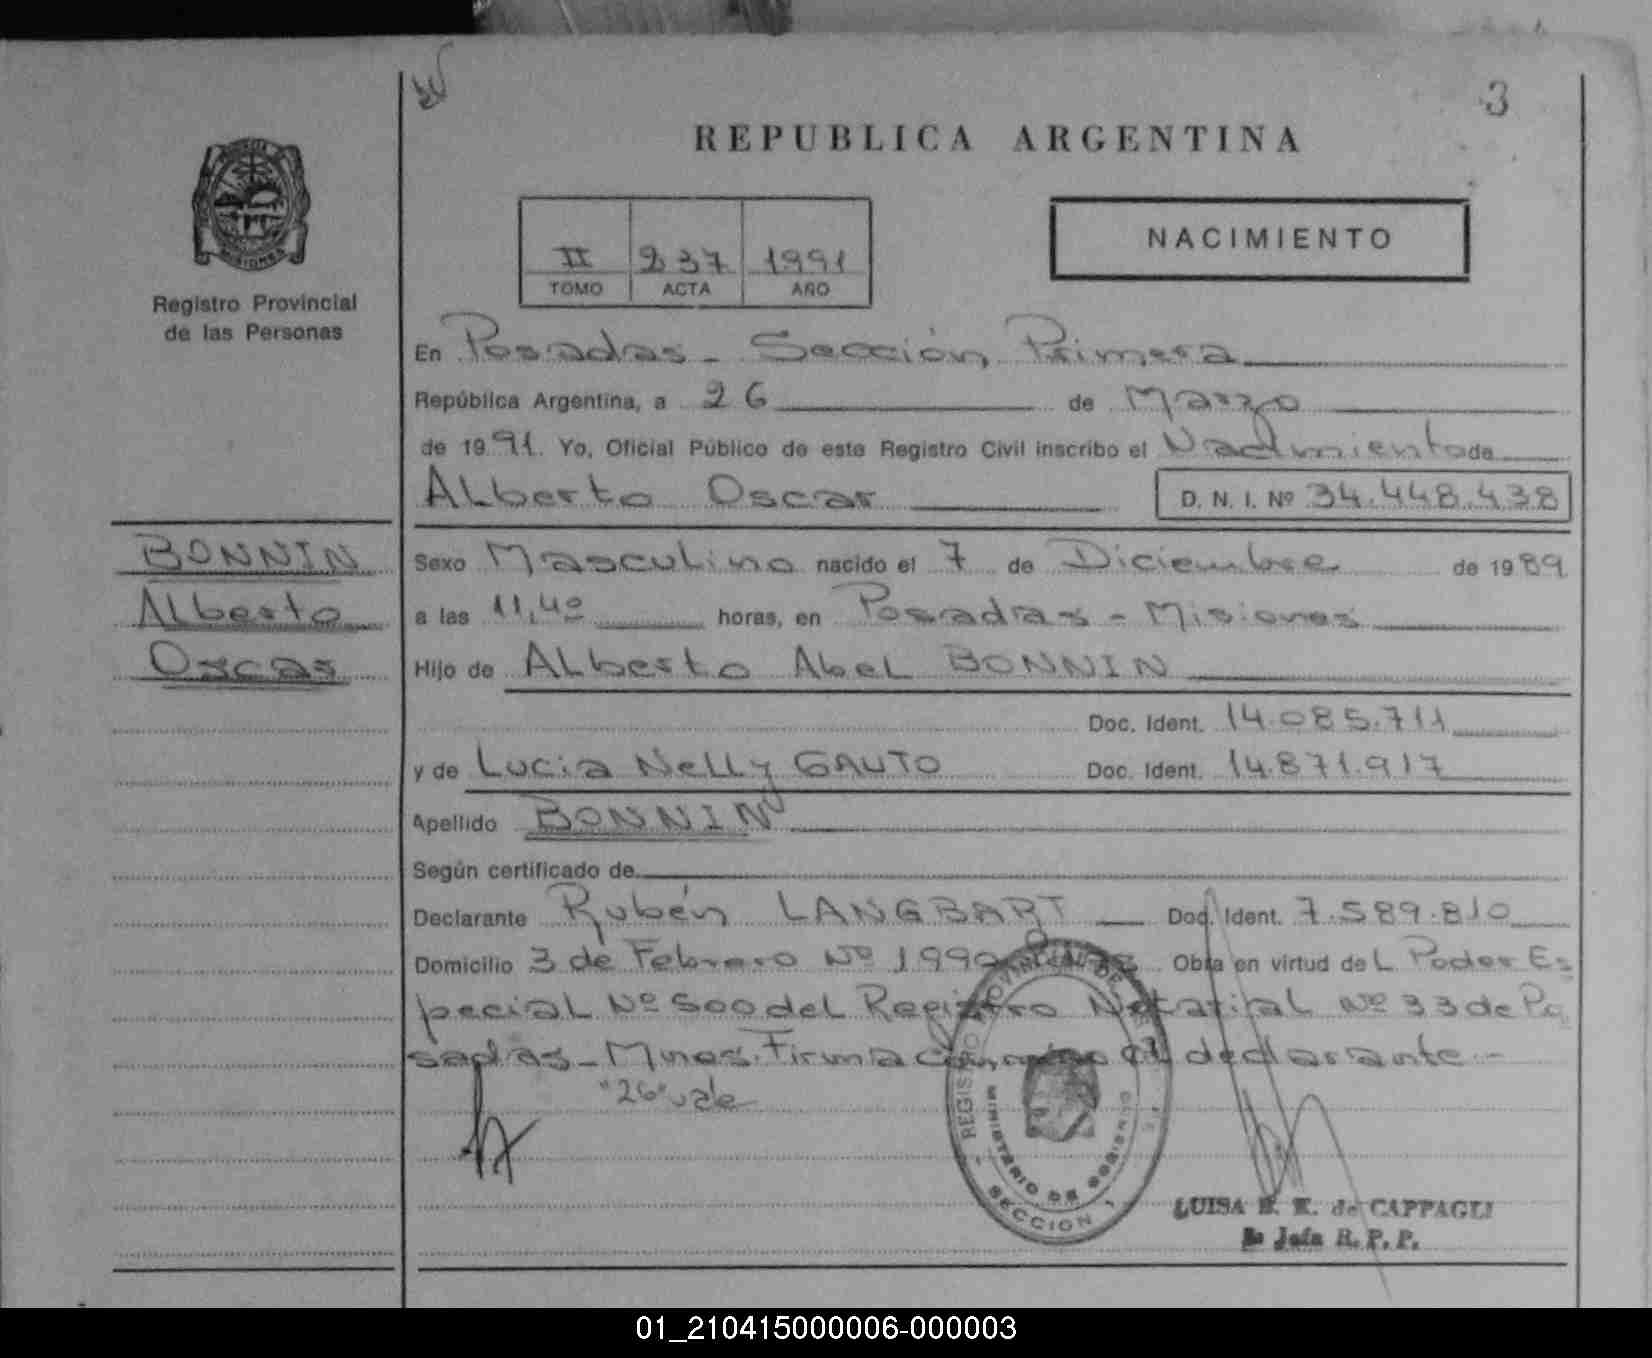 3
REPUBLICA ARGENTINA
MISIONES
Registro Provincial
de las Personas
II 237 1991
TOMO ACTA AÑO
NACIMIENTO
En Posadas - Sección Primera
República Argentina, a 26 de Marzo
de 1991. Yo, Oficial Público de este Registro Civil inscribo el Nacimiento de
Alberto Oscar D. N. I. Nº 34.448.438
BONNIN
Alberto
Oscar
Sexo Masculino nacido el 7 de Diciembre de 1989
a las 11,40 horas, en Posadas - Misiones
Hijo de Alberto Abel BONNIN
Doc. Ident. 14.085.711
y de Lucia Nelly GAUTO Doc. Ident. 14.871.917
Apellido BONNIN
Según certificado de
Declarante Rubén LANGBART Doc. Ident. 7.589.810
Domicilio 3 de Febrero Nº 1990 Obra en virtud del Poder Es
pecial Nº 500 del Registro Notarial Nº 33 de Po
sadas - Mnes. Firma el declarante -
"26" vale
REGISTRO PROVINCIAL DE
MINISTERIO DE GOBIERNO
SECCION 1
LUISA E. K. de CAPPAGLI
Jefa R. P. P.
01_210415000006-000003